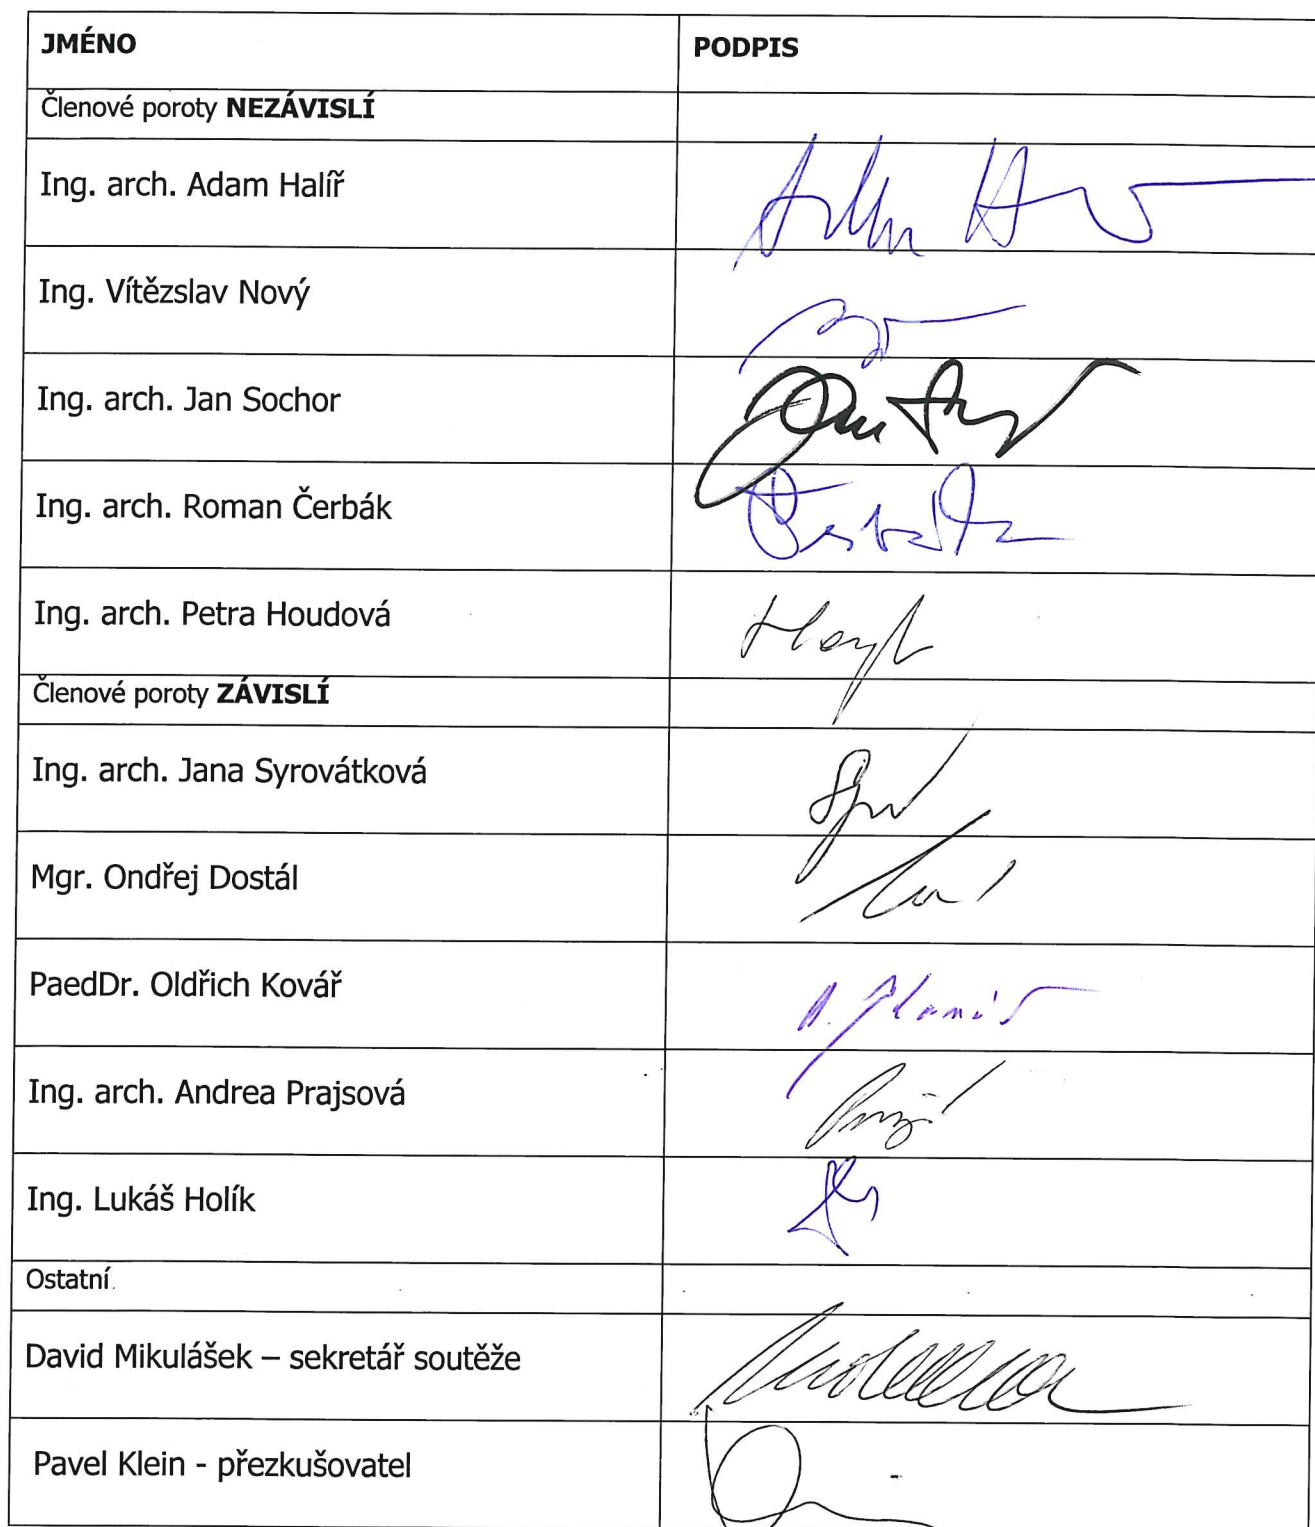 JMÉNO PODPIS
Členové poroty NEZÁVISLÍ
Ing. arch. Adam Halíř
Ing. Vítězslav Nový
Ing. arch. Jan Sochor
Ing. arch. Roman Čerbák
Ing. arch. Petra Houdová
Členové poroty ZÁVISLÍ
Ing. arch. Jana Syrovátková
Mgr. Ondřej Dostál
PaedDr. Oldřich Kovář
Ing. arch. Andrea Prajsová
Ing. Lukáš Holík
Ostatní
David Mikulášek – sekretář soutěže
Pavel Klein - přezkušovatel